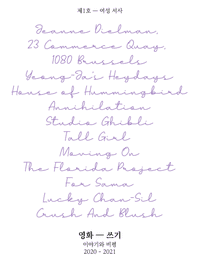 제1호 — 여성 서사
Jeanne Dielman,
23 Commerce Quay,
1080 Brussels
Yeong-Ja's Heydays
House of Hummingbird
Annihilation
Studio Ghibli
Tall Girl
Moving On
The Florida Project
For Sama
Lucky Chan-Sil
Crush And Blush
영화 — 쓰기
이야기와 비평
2020 - 2021